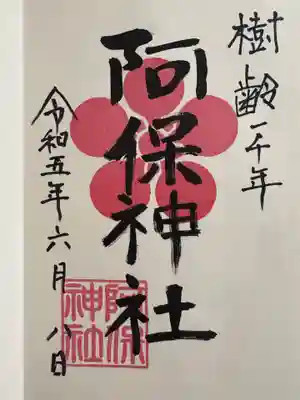 樹齢一千年
阿保神社
令和五年六月八日
阿保神社